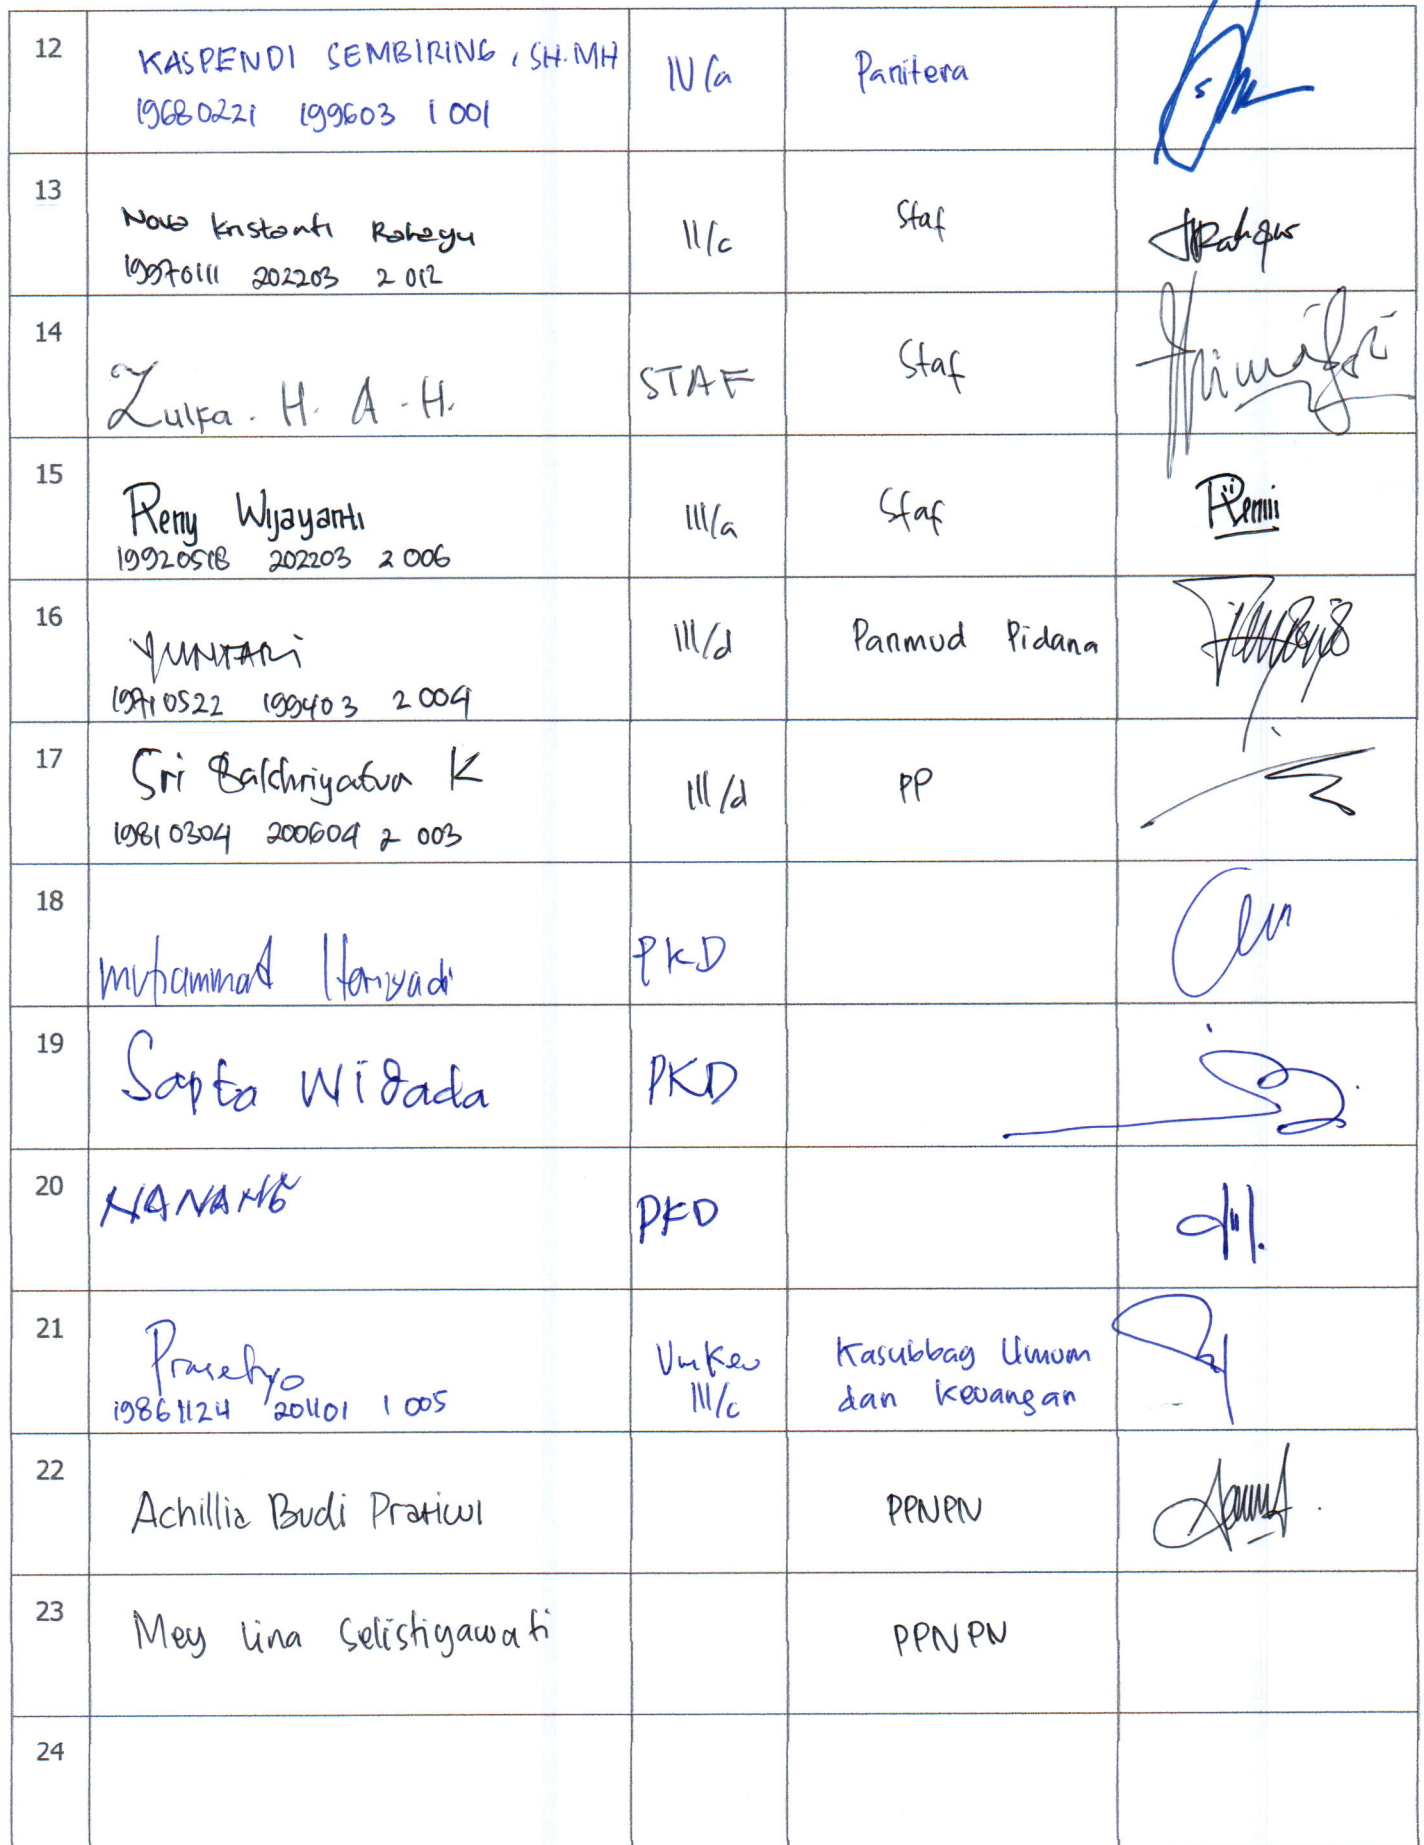 12
KASPENDI SEMBIRING, SH.MH
19680221 199603 1 001
IV/a
Panitera
13
Nova Kristanti Rahayu
19970111 202203 2 012
II/c
Staf
14
Zulfa. H. A. H.
STAF
Staf
15
Reny Wijayanti
19920518 202203 2 006
III/a
Staf
Renii
16
YUNTARI
19710522 199403 2 004
III/d
Panmud Pidana
17
Sri K
19810304 200604 2 003
III/d
PP
18
Muhammad Heriyadi
PKD
19
Sapta Widada
PKD
20
NANANG
PKD
21
Prasetyo
19861124 201101 1 005
UmKeu
III/c
Kasubbag Umum
dan Keuangan
22
Achillia Budi Pratiwi
PPNPN
23
Mey Lina Selistiyawati
PPNPN
24